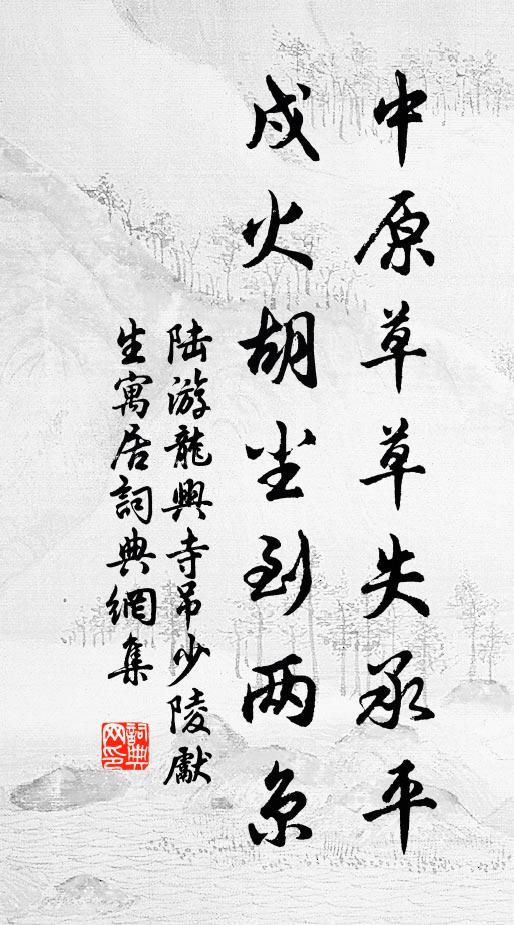 中原草草失承平
戍火胡尘到两京
陆游龍興寺吊少陵獻
生寓居詞典網集
詞典網印